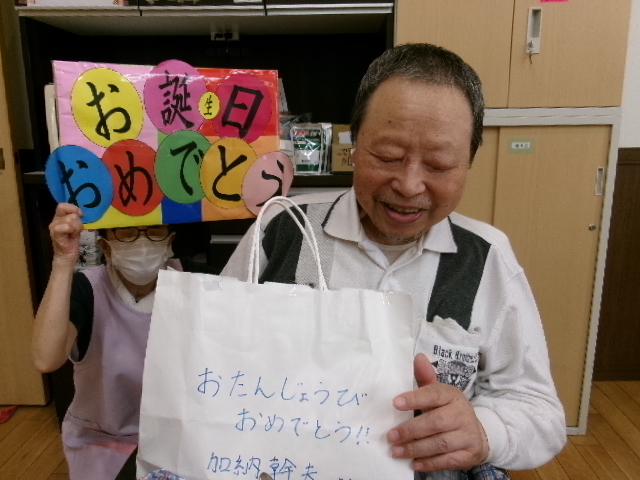 お誕生日
おめでとう
おたんじょうび
おめでとう!!
加納幹夫
Black